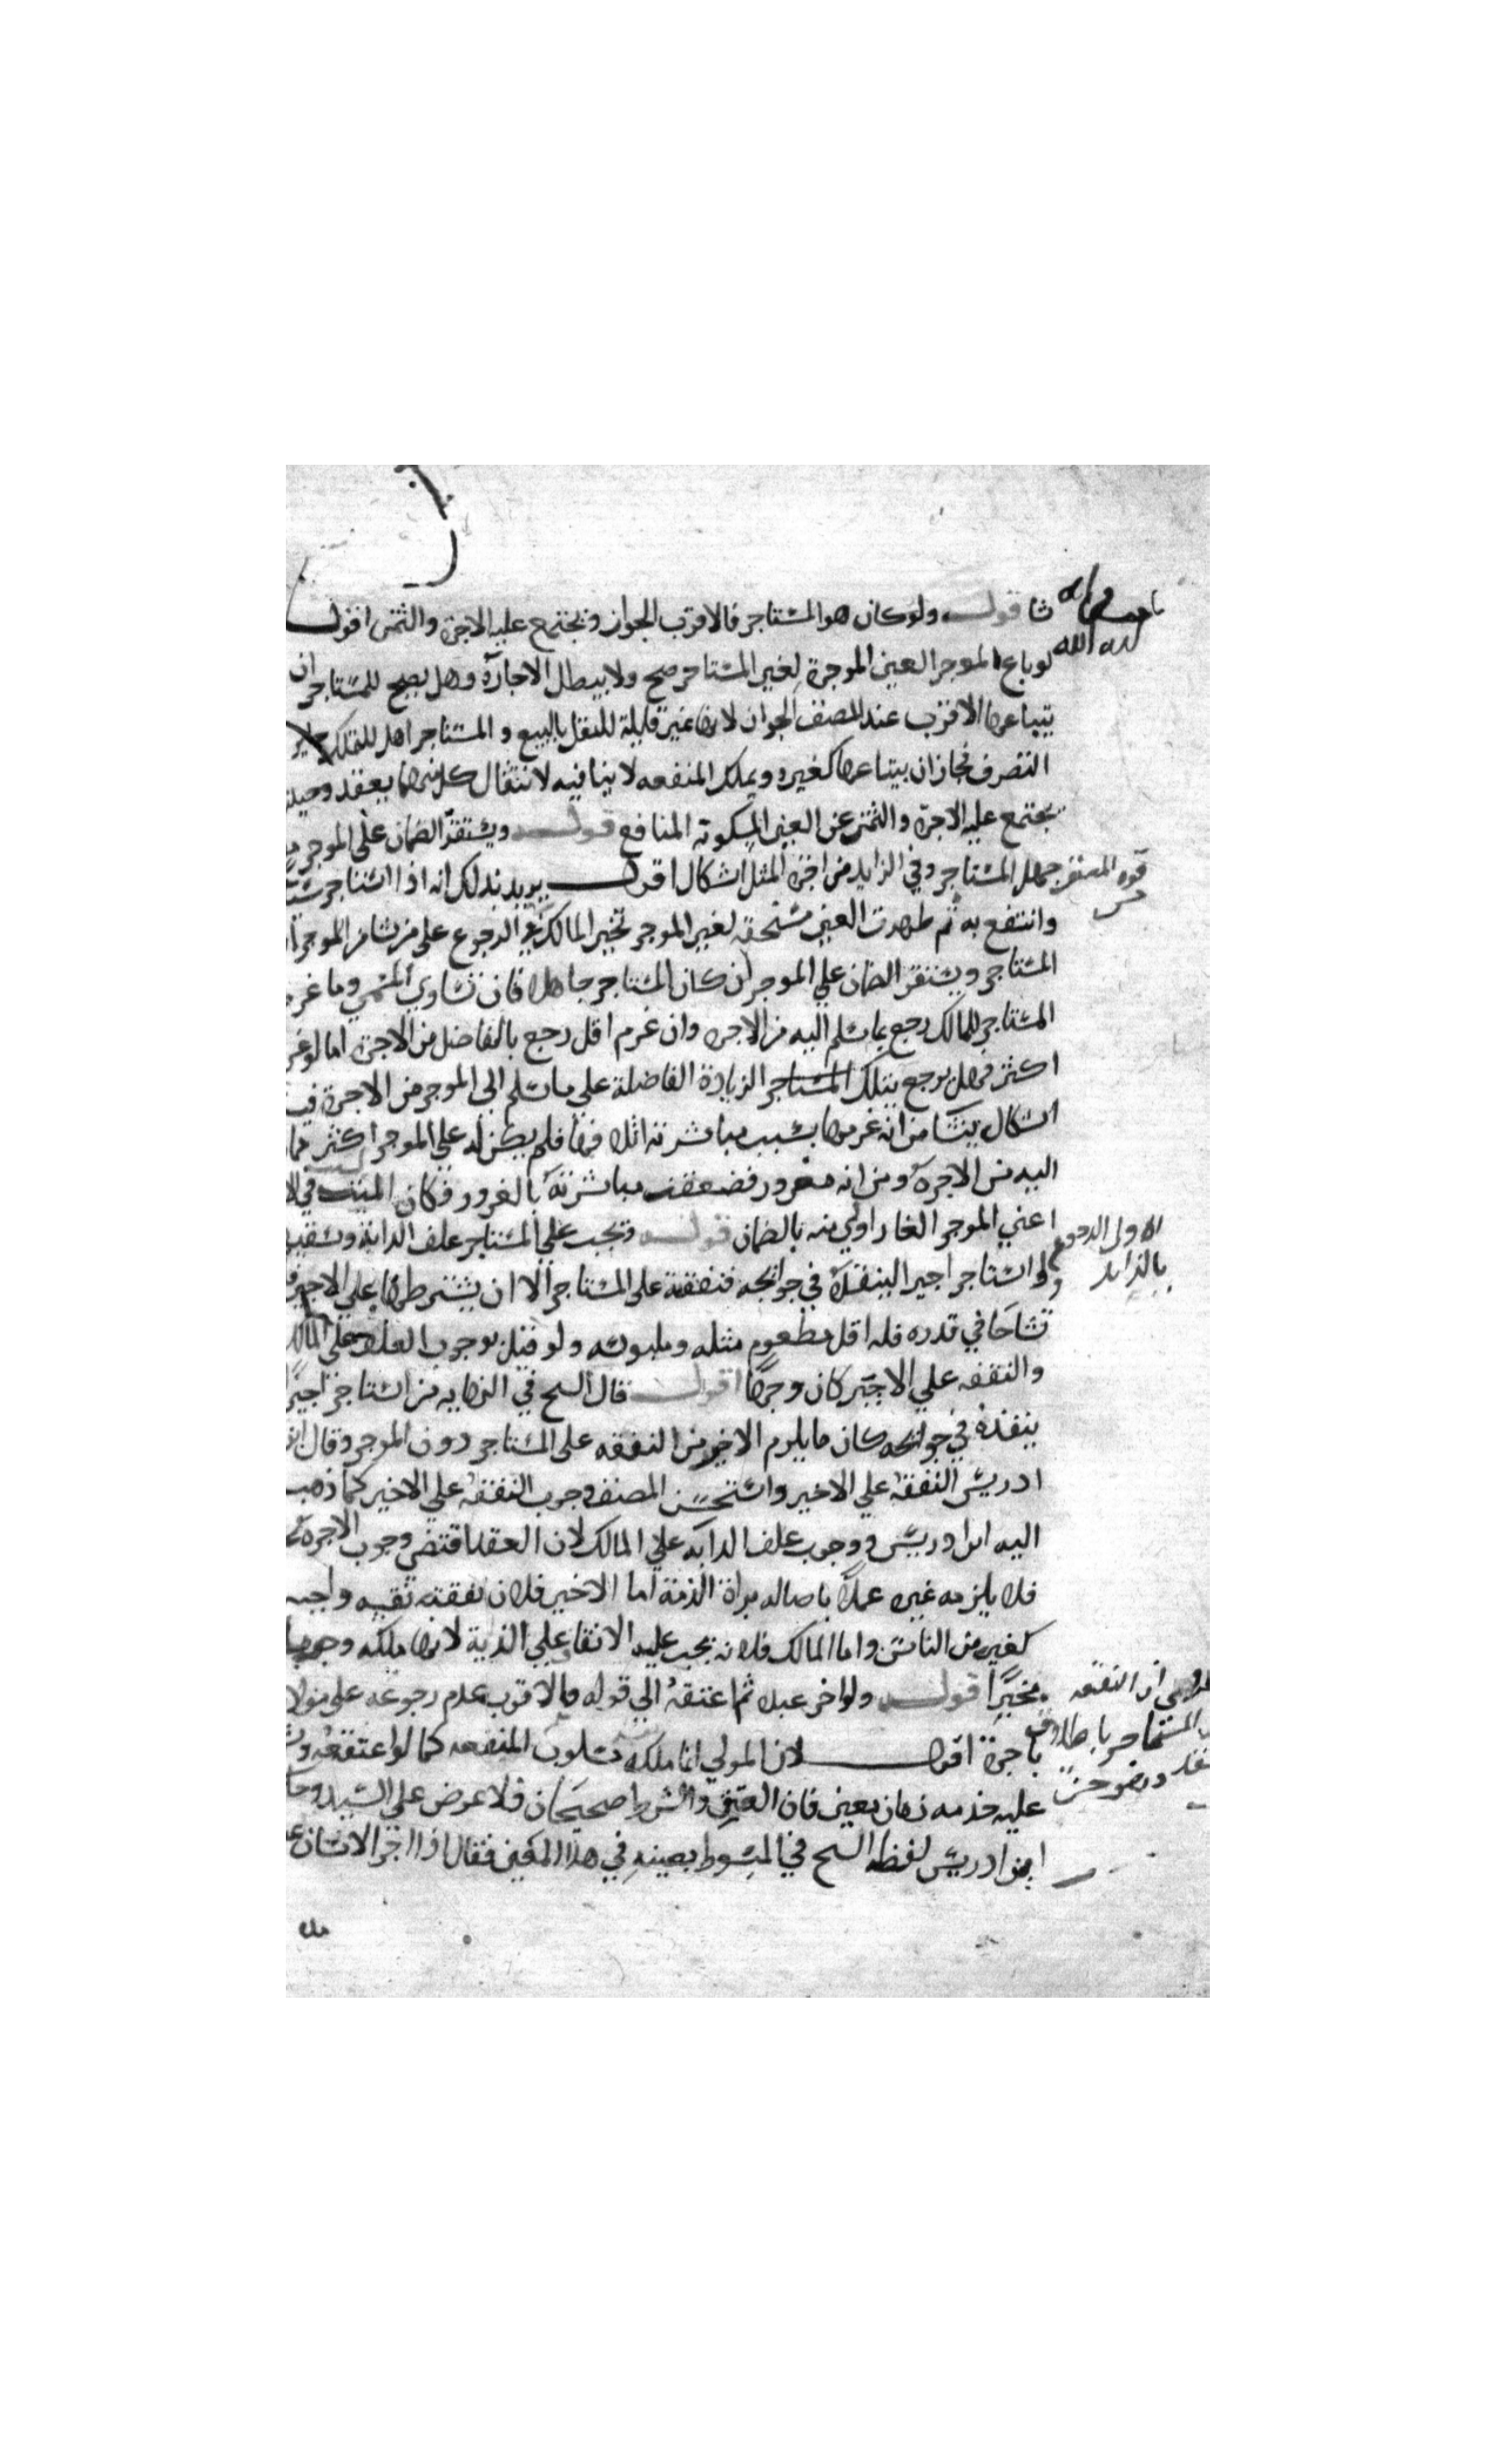 شا قولـــه ولو كان هو المستاجر فالاقرب الجواز ويجتمع عليه الاجرة والثمن اقول
لو باع الموجر العين الموجرة لغير المستاجر صح ولا يبطل الاجارة وهل يصح للمستاجر ان
يتباعها الاقرب عند المصنف الجواز لانها عين قابلة للنقل بالبيع والمستاجر اهل للتملك
التصرف فجاز ان يبتاعها كغيره ويملك المنفعه لا ينافيه لانتقال كل منهما بعقد وحينئذ
يجتمع عليه الاجرة والثمن عن العين المسلوبة المنافع قولـــه ويستقر الضمان على الموجر مع
جهل المستاجر وفي الزايد من اجرة المثل اشكال اقول يريد بذلك انه اذا استاجر شيئا
وانتفع به ثم ظهرت العين مستحقه لغير الموجر تخير المالك في الرجوع على من شا من الموجر او
المستاجر ويستقر الضمان علي الموجر ان كان المستاجر جاهلا فان تساوي المسمي وما غرمه
المستاجر للمالك رجع بما سلم اليه من الاجره وان غرم اقل رجع بالفاضل من الاجرة اما لو غرم
اكثر فهل يرجع بتلك الزيادة الفاضلة علي ما سلم الى الموجر من الاجرة فيه
اشكال ينشا من انه غرمها بسبب مباشرته اتلافها فلم يكن له علي الموجر اكثر مما
اليه من الاجرة ومن انه مغرور فضعفت مباشرته بالغرور فكان
اعني الموجر الغار اولي منه بالضمان قولـــه وتجب علي المستاجر علف الدابة وسقيها
ولو استاجر اجيرا لينفذه في حوائجه فنفقته على المستاجر الا ان يشترطها علي الاجير فان
تشاحا في قدره فله اقل مطعوم مثله وملبوسه ولو قيل بوجوب العلف علي المالك
والنفقه علي الاجير كان وجها اقول قال الشح في النهايه من استاجر اجيرا
ينفذه في حوائجه كان ما يلزم الاجير من النفقه على المستاجر دون الموجر وقال ابن
ادريس النفقه علي الاجير واستحسن المصنف وجوب النفقه علي الاجير كما ذهب
اليه ابن ادريس ووجوب علف الدابه علي المالك لان العقد اقتضى وجوب الاجره
فلا يلزمه غيره عملا باصاله براة الذمة اما الاجير فلان نفقته نفسه واجبه
كغيره من الناس واما المالك فلانه يجب عليه الانفاق علي الدابة لانها ملكه وجهها
قولـــه ولو اجر عبده ثم اعتقه الي قوله فالاقرب عدم رجوعه على مولاه
باجرة اقول لان المولي انما ملكه مسلوب المنفعه كما لو اعتقه
عليه خدمه زمان معين فان العتق والشرط صحيحان فلا عوض علي السيد وحكا
ابن ادريس لفظ الشح في المبسوط بعينه في هذا المعني فقال اذا اجر الانسان
الاولى الرجوع
بالزايد